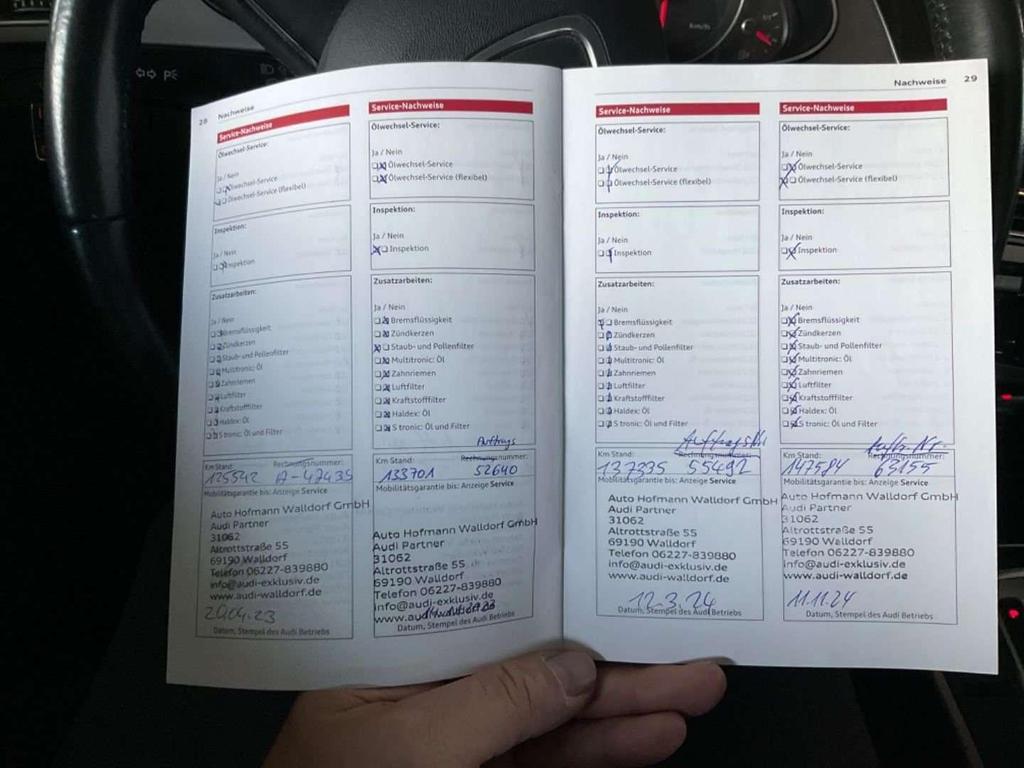 28 Nachweise
Service-Nachweise
Ölwechsel-Service:
Ja / Nein
Ölwechsel-Service
Ölwechsel-Service (flexibel)
Inspektion:
Ja / Nein
Inspektion
Zusatzarbeiten:
Ja / Nein
Bremsflüssigkeit
Zündkerzen
Staub- und Pollenfilter
Multitronic: Öl
Zahnriemen
Luftfilter
Kraftstofffilter
Haldex: Öl
S tronic: Öl und Filter
Km Stand: Rechnungsnummer:
125542 A-47435
Mobilitätsgarantie bis: Anzeige Service
Auto Hofmann Walldorf GmbH
Audi Partner
31062
Altrottstraße 55
69190 Walldorf
Telefon 06227-839880
info@audi-exklusiv.de
www.audi-walldorf.de
20.04.23
Datum, Stempel des Audi Betriebs
Service-Nachweise
Ölwechsel-Service:
Ja / Nein
Ölwechsel-Service
Ölwechsel-Service (flexibel)
Inspektion:
Ja / Nein
Inspektion
Zusatzarbeiten:
Ja / Nein
Bremsflüssigkeit
Zündkerzen
Staub- und Pollenfilter
Multitronic: Öl
Zahnriemen
Luftfilter
Kraftstofffilter
Haldex: Öl
S tronic: Öl und Filter
Auftrags
Km Stand: Rechnungsnummer:
133701 52640
Mobilitätsgarantie bis: Anzeige Service
Auto Hofmann Walldorf GmbH
Audi Partner
31062
Altrottstraße 55
69190 Walldorf
Telefon 06227-839880
info@audi-exklusiv.de
Datum, Stempel des Audi Betriebs
Nachweise 29
Service-Nachweise
Ölwechsel-Service:
Ja / Nein
Ölwechsel-Service
Ölwechsel-Service (flexibel)
Inspektion:
Ja / Nein
Inspektion
Zusatzarbeiten:
Ja / Nein
Bremsflüssigkeit
Zündkerzen
Staub- und Pollenfilter
Multitronic: Öl
Zahnriemen
Luftfilter
Kraftstofffilter
Haldex: Öl
S tronic: Öl und Filter
Km Stand: Rechnungsnummer:
137335 55491
Mobilitätsgarantie bis: Anzeige Service
Auto Hofmann Walldorf GmbH
Audi Partner
31062
Altrottstraße 55
69190 Walldorf
Telefon 06227-839880
info@audi-exklusiv.de
www.audi-walldorf.de
12.3.24
Datum, Stempel des Audi Betriebs
Service-Nachweise
Ölwechsel-Service:
Ja / Nein
Ölwechsel-Service
Ölwechsel-Service (flexibel)
Inspektion:
Ja / Nein
Inspektion
Zusatzarbeiten:
Ja / Nein
Bremsflüssigkeit
Zündkerzen
Staub- und Pollenfilter
Multitronic: Öl
Zahnriemen
Luftfilter
Kraftstofffilter
Haldex: Öl
S tronic: Öl und Filter
Km Stand: Rechnungsnummer:
147584 63155
Mobilitätsgarantie bis: Anzeige Service
Auto Hofmann Walldorf GmbH
Audi Partner
31062
Altrottstraße 55
69190 Walldorf
Telefon 06227-839880
info@audi-exklusiv.de
www.audi-walldorf.de
11.11.24
Datum, Stempel des Audi Betriebs